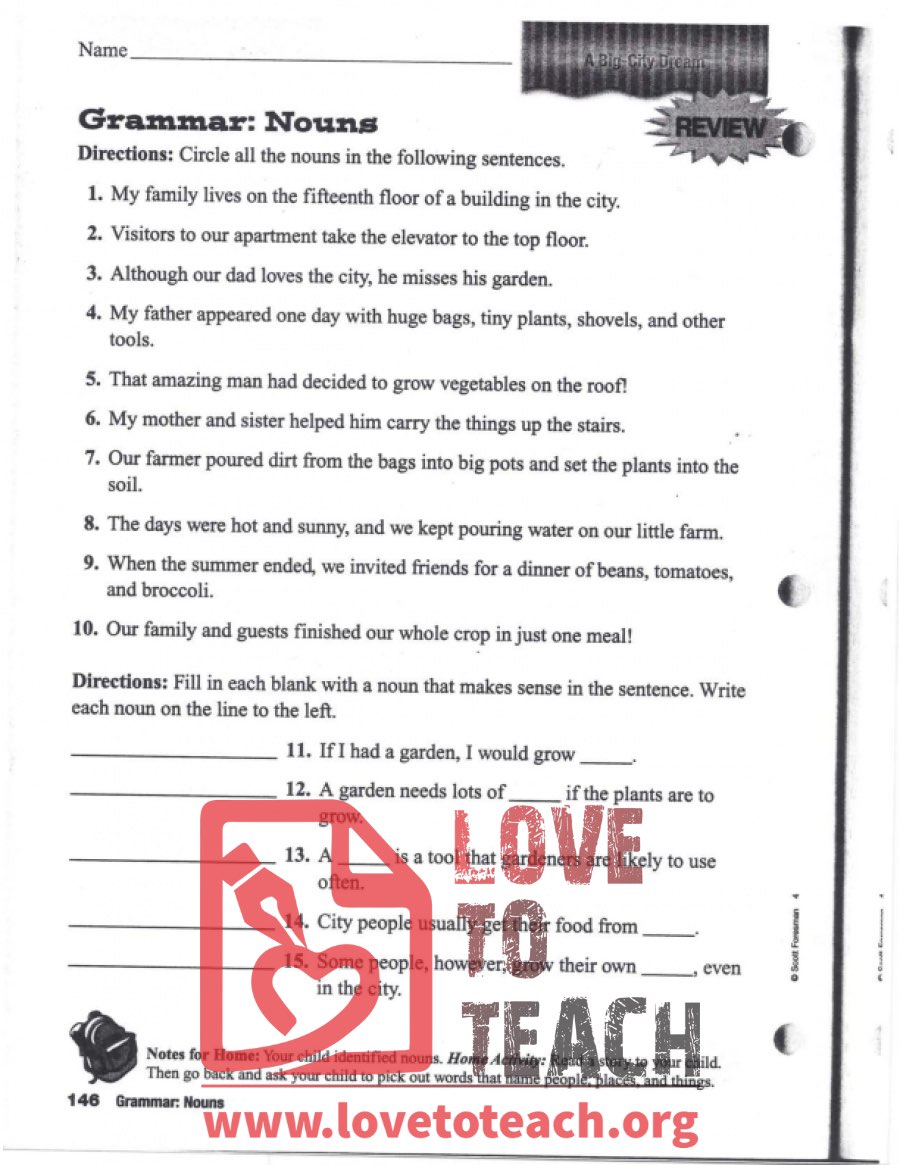 Name
A Big-City Dream
Grammar: Nouns
REVIEW
Directions: Circle all the nouns in the following sentences.
1. My family lives on the fifteenth floor of a building in the city.
2. Visitors to our apartment take the elevator to the top floor.
3. Although our dad loves the city, he misses his garden.
4. My father appeared one day with huge bags, tiny plants, shovels, and other
tools.
5. That amazing man had decided to grow vegetables on the roof!
6. My mother and sister helped him carry the things up the stairs.
7. Our farmer poured dirt from the bags into big pots and set the plants into the
soil.
8. The days were hot and sunny, and we kept pouring water on our little farm.
9. When the summer ended, we invited friends for a dinner of beans, tomatoes,
and broccoli.
10. Our family and guests finished our whole crop in just one meal!
Directions: Fill in each blank with a noun that makes sense in the sentence. Write
each noun on the line to the left.
11. If I had a garden, I would grow _____.
12. A garden needs lots of _____ if the plants are to
grow.
13. A _____ is a tool that gardeners are likely to use
often.
14. City people usually get their food from _____.
15. Some people, however, grow their own _____, even
in the city.
LOVE
TO
TEACH
© Scott Foresman 4
Notes for Home: Your child identified nouns. Home Activity: Read a story to your child.
Then go back and ask your child to pick out words that name people, places, and things.
146 Grammar: Nouns
www.lovetoteach.org